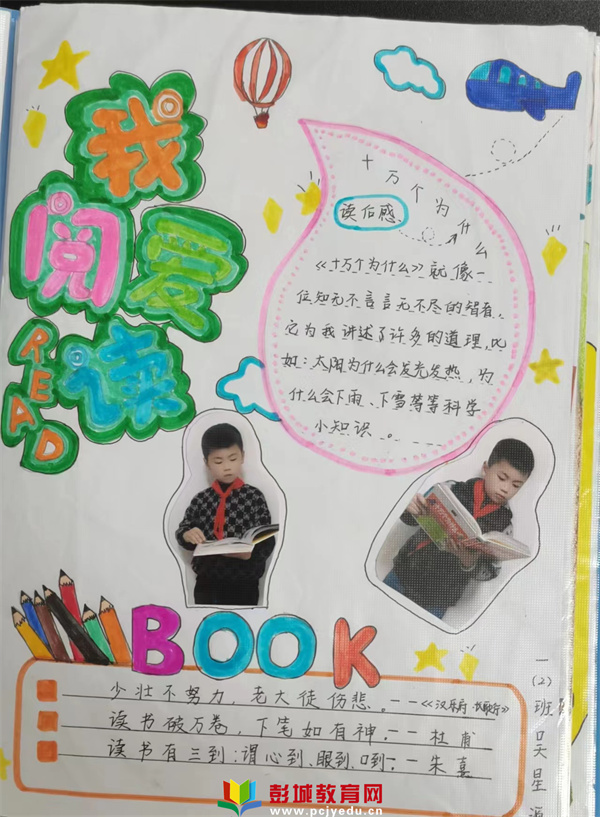 我爱
阅读
READ
十万个为什么
读后感
《十万个为什么》就像一
位知无不言言无不尽的智者,
它为我讲述了许多的道理,比
如:太阳为什么会发光发热,为
什么会下雨、下雪等等科学
小知识。
BOOK
少壮不努力,老大徒伤悲。——《汉乐府·长歌行》
读书破万卷,下笔如有神。——杜甫
读书有三到:谓心到、眼到、口到。——朱熹
一(2)班吴星源
彭城教育网
www.pcjyedu.cn